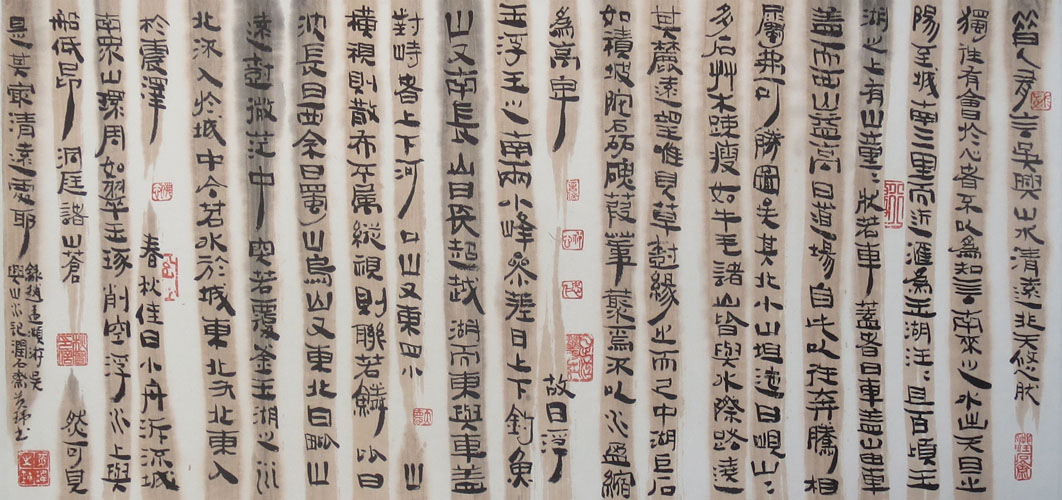 昔人有言吳興山水清遠非夫悠然
獨往有會於心者不以為知言南來之水出天目之
陽至城南三里而近滙為玉湖汪〻且百頃玉
湖之上有山童〻狀若車蓋者曰車蓋山由車
蓋而西山益高曰道場自此以往奔騰相
屬弗可勝圖矣其北小山坦迤曰峴山〻
多石艸木疎瘦如牛毛諸山皆與水際路遶
其麓遠望唯見草樹緣之而已中湖巨石
如積坡陀磊磈葭葦叢焉不以水盈縮
為高卑 故曰浮
玉浮玉之南兩小峰參差曰上下釣魚
山又南長山曰長超越湖而東與車蓋
對峙者上下河口山又東四小山
橫視則散布不屬縱視則聯若鱗比曰
沈長曰西余曰蜀山烏山又東北曰毗山
遠樹微茫中突若覆釜玉湖之水
北流入於城中合苕水於城東北又北東入
於震澤 春秋佳日小舟泝流城
南眾山環周如翠玉琢削空浮水上與
船低昂 洞庭諸山蒼 然可見
是其最清遠處耶
錄趙孟頫游吳
興山水記潤石齋書